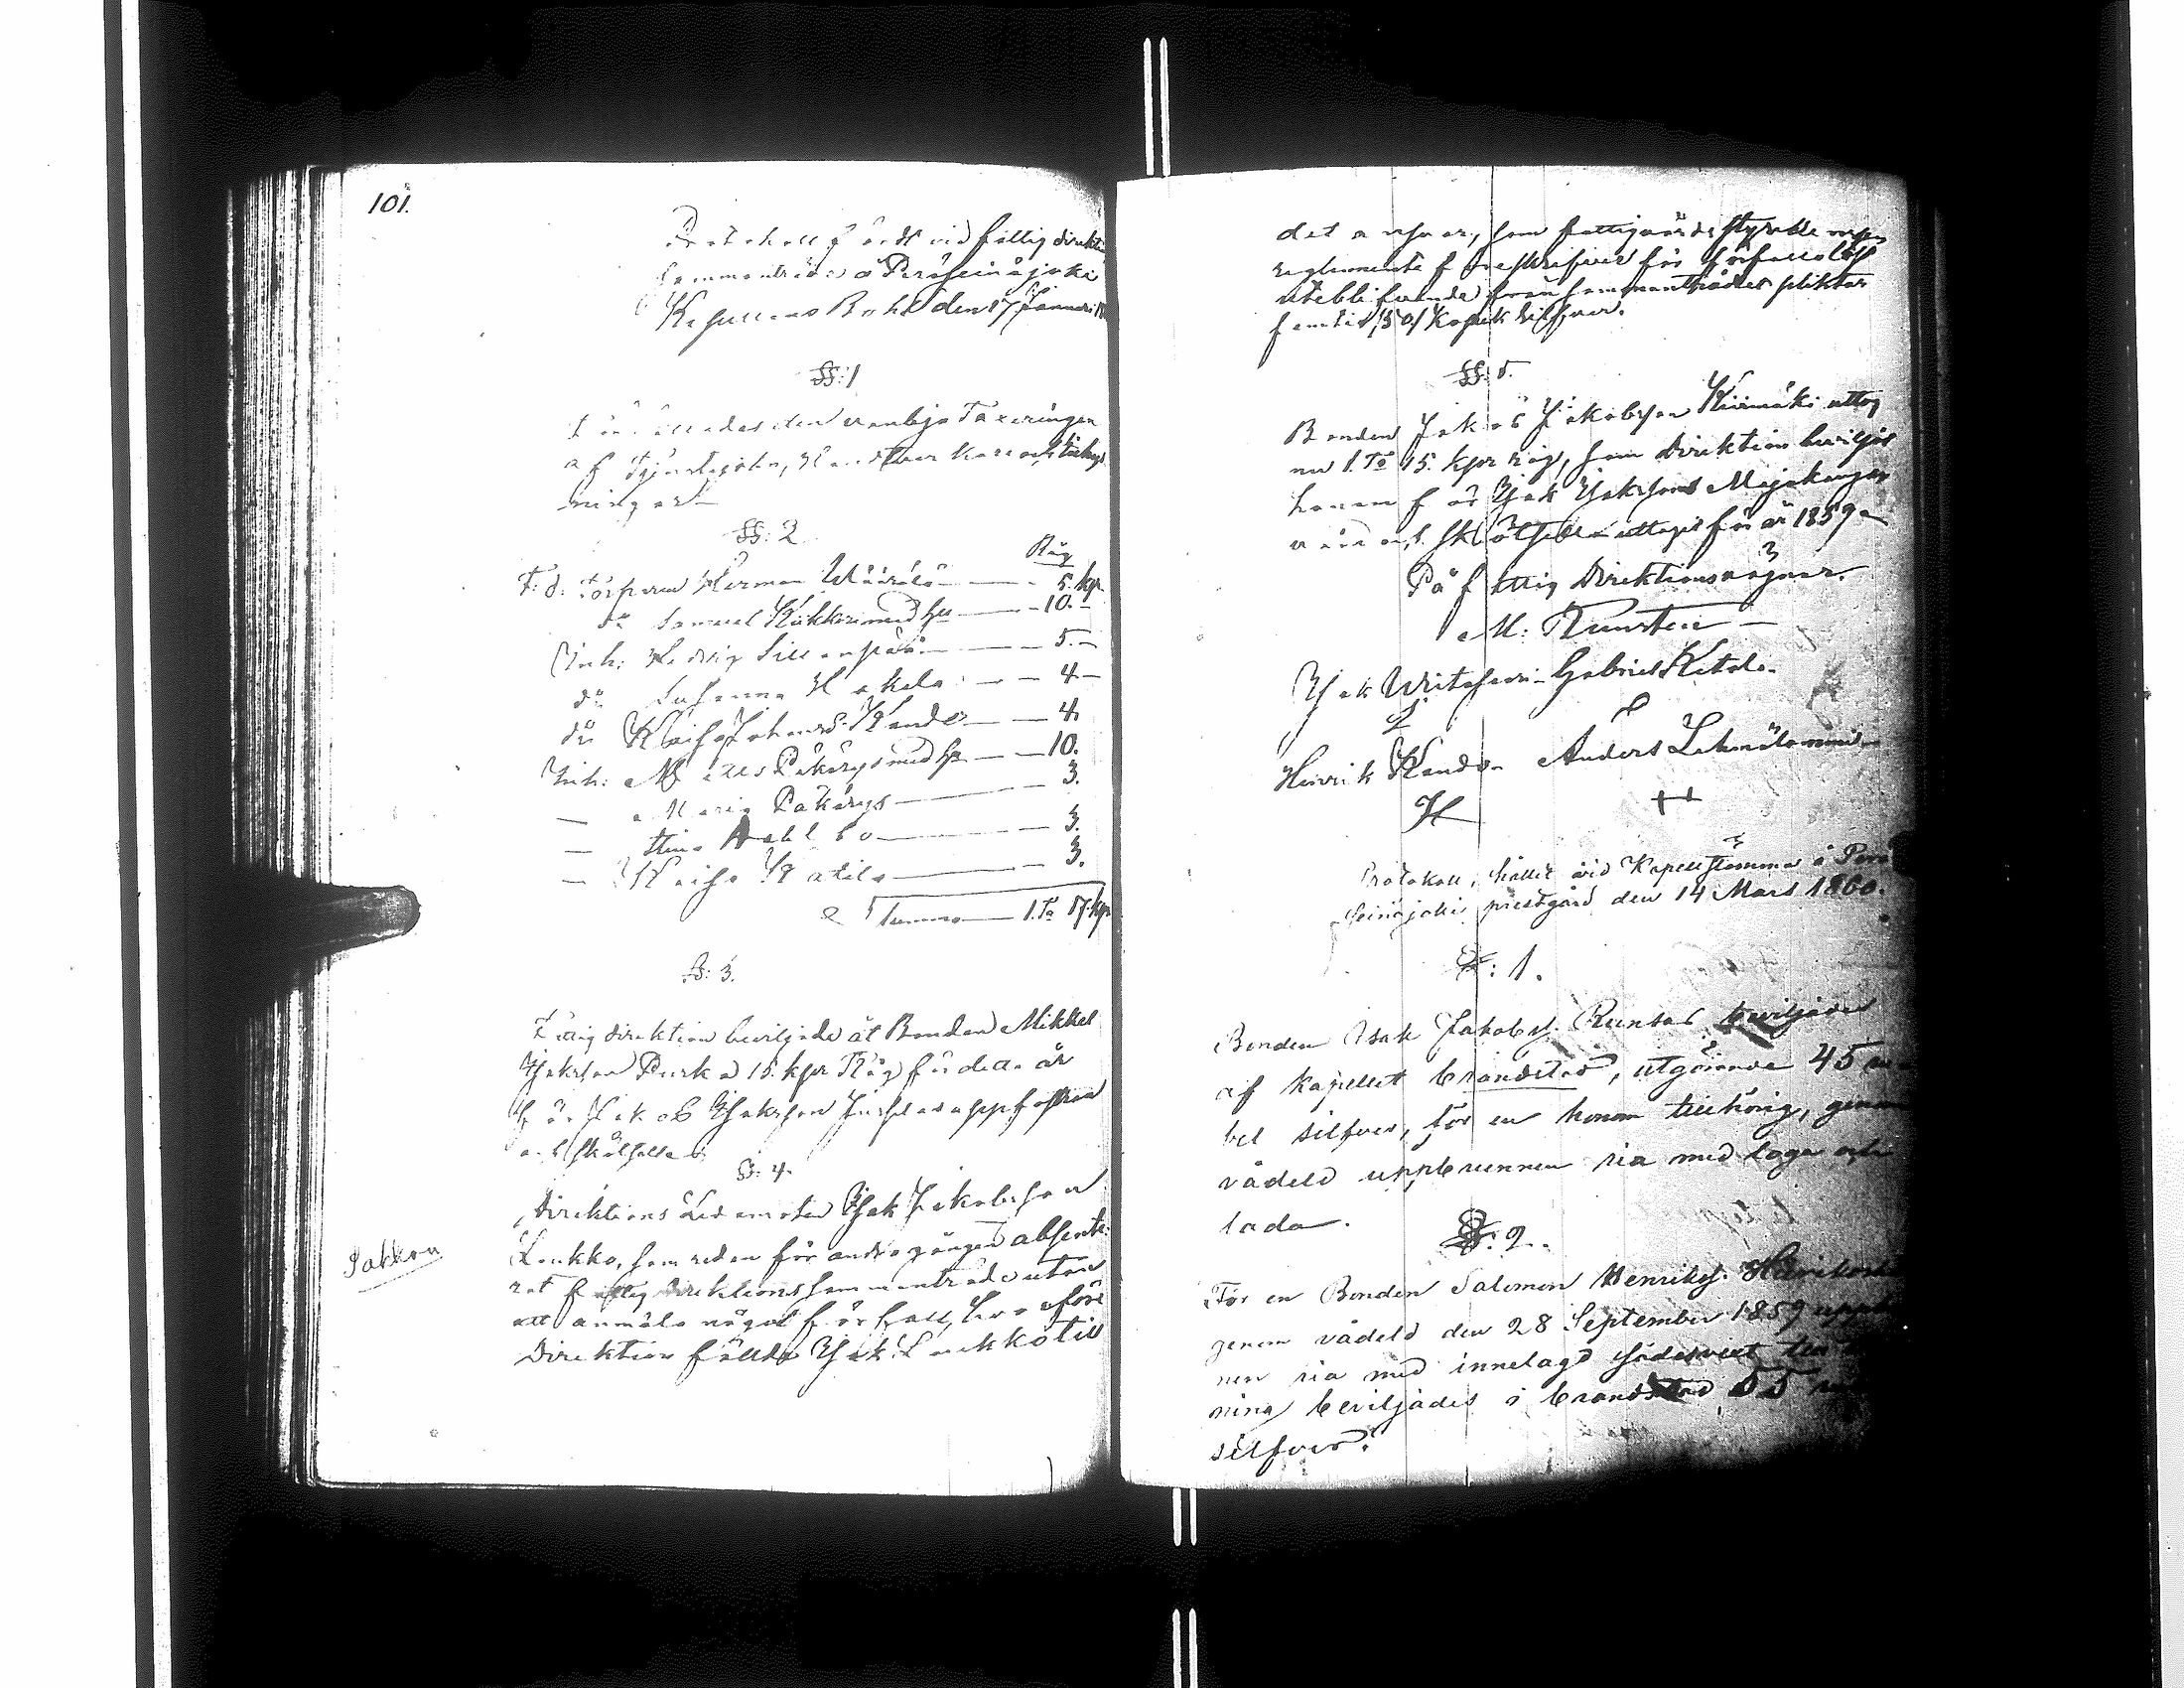 101.
Protokoll fördt vid fattig direkti
sammanträde å Peräseinäjoki
Kapellans Bohl den 17 Januari
§§: 1
den vanliga Taxeringen
af Tjenstehjon, Handtverkare och
ningar
§§: 2
Råg
F: d: Torparen Herman 5. kpr
do Samuel Kukkari med hu 10. —
Inh: Hedvig Sillanpää 5 —
do Susanna Hakala 4 —
do Kaisa Johansd. Kando 4
Inh: Matts Påkärys med hu 10.
— Maria Påkärys 3.
— Stina Dahlbo 3.
— Kaisa Katila 3.
Summa 1. Ta 17. kpr
§: 3.
Fattig direktion beviljade åt Bonden Mikkel
Isaksson Purka 15. kpr Råg för detta år
för Jakob Isaksson uppfostran
och skötsel
§: 4.
Direktions Ledamoten Isak Jakobsson
Loukko, som redan för andra gången absente-
rat fattig direktions sammanträde utan
att anmäla något förfall, hvarföre
Direktion fällde Isak Loukko till
Sakkoa
det ansvar, som fattigvårds styrelse
reglemente föreskrifver för förfallolöst
utebblifvande från sammanträdet pliktar
femtio /50/ Kopek Silfver.
§§: 5.
Bonden Jakob Jakobsson Kiimäki uttog
nu 1. Ta 15. kpr råg, som Direktion beviljat
honom för Isak Isaksons Majakangas
vård och skötsel uttaget för år 1859
På fattig Direktions vägnar.
M: Runsten
Isak Uritasaari Gabriel Ketola
Henrik Kando Anders Lehmälammi
H ++
Protokoll, hållit vid Kapellstämma å Perä
seinäjoki prestgård den 14 Mars 1860.
§: 1.
Bonden Isak Jakobss. Runsas beviljades
af kapellet brandstod, utgörande 45 ru
bel silfver, för en honom tillhörig, genom
vådeld uppbrunnen ria med loge och
lada.
§: 2.
För en Bonden Salomon Henrikss.
genom vådeld den 28 September 1859 uppb
nen ria med innelagd
ning beviljades i brandstod 55 ru
silfver.